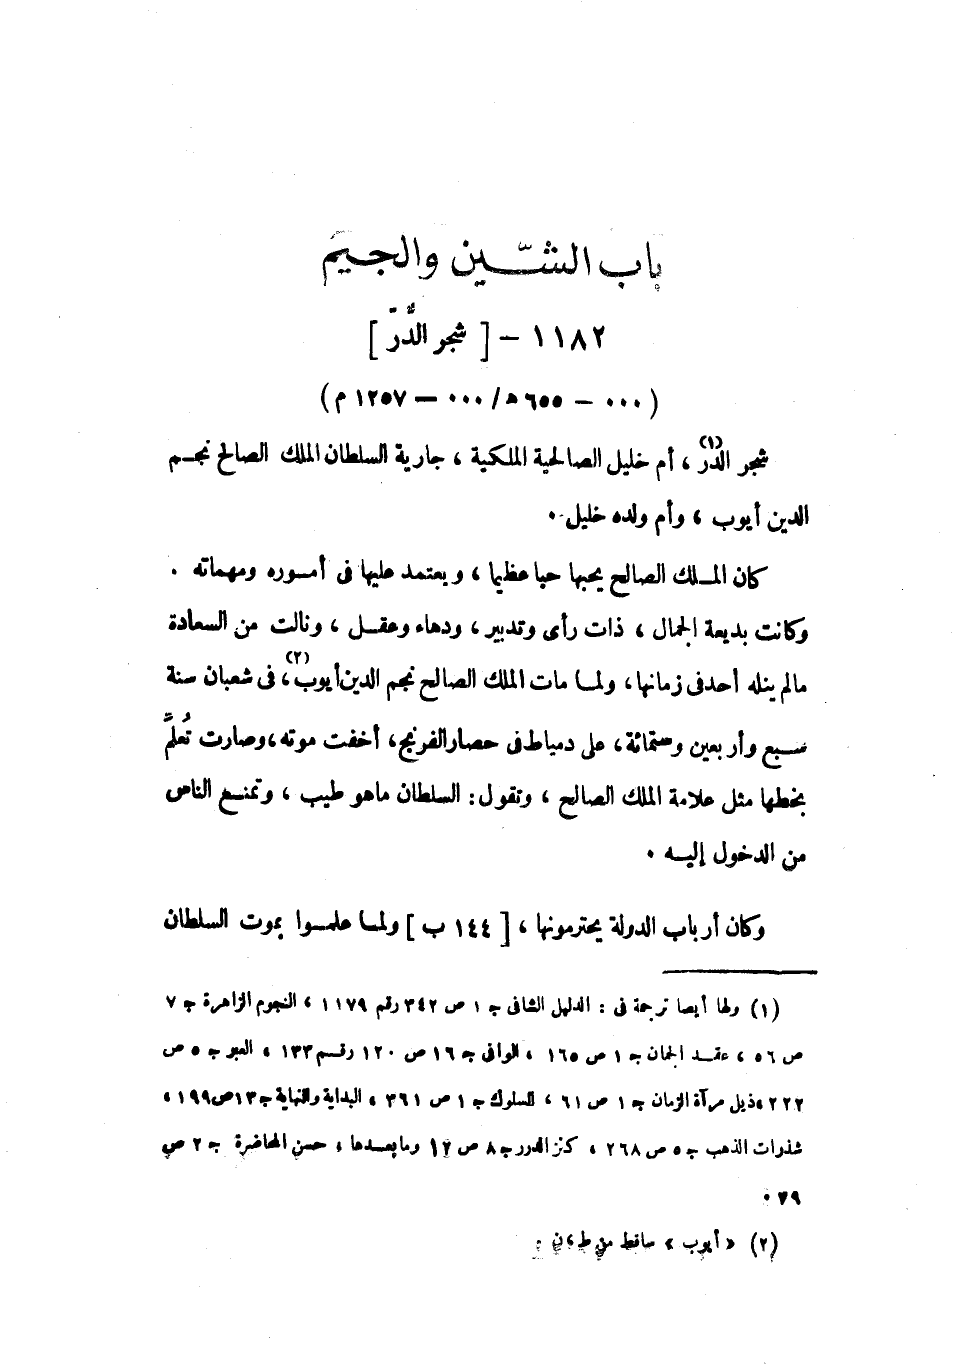 باب الشّين والجيم
١١٨٢ – [ شجر الدُّرّ ]
( ٠٠٠ – ٦٥٥ هـ/ ٠٠٠ – ١٢٥٧ م )
شجر الدّر(١) ، أم خليل الصالحية الملكية ، جارية السلطان الملك الصالح نجم
الدين أيوب ، وأم ولده خليل ٠
كان الملك الصالح يحبها حبا عظيما ، ويعتمد عليها فى أموره ومهماته .
وكانت بديعة الجمال ، ذات رأى وتدبير ، ودهاء وعقل ، ونالت من السعادة
مالم ينله أحد فى زمانها ، ولما مات الملك الصالح نجم الدين أيوب(٢) ، فى شعبان سنة
سبع وأربعين وستمائة ، على دمياط فى حصار الفرنج ، أخفت موته ، وصارت تُعلِّم
بخطها مثل علامة الملك الصالح ، وتقول : السلطان ماهو طيب ، وتمنع الناس
من الدخول إليه ٠
وكان أرباب الدولة يحترمونها ، [ ١٤٤ ب ] ولما علموا بموت السلطان
(١) ولها أيضا ترجمة فى : الدليل الشافى جـ ١ ص ٣٤٢ رقم ١١٧٩ ، النجوم الزاهرة جـ ٧
ص ٥٦ ، عقد الجمان جـ ١ ص ١٦٥ ، الوافى جـ ١٦ ص ١٢٠ رقم ١٣٣ ، العبر جـ ٥ ص
٢٢٢ ، ذيل مرآة الزمان جـ ١ ص ٦١ ، السلوك جـ ١ ص ٣٦١ ، البداية والنهاية جـ ١٣ ص ١٩٩ ،
شذرات الذهب جـ ٥ ص ٢٦٨ ، كنز الدرر جـ ٨ ص ١٢ وما بعدها ، حسن المحاضرة جـ ٢ ص
٣٩ ٠
(٢) « أيوب » ساقط من ط ، ن ٠